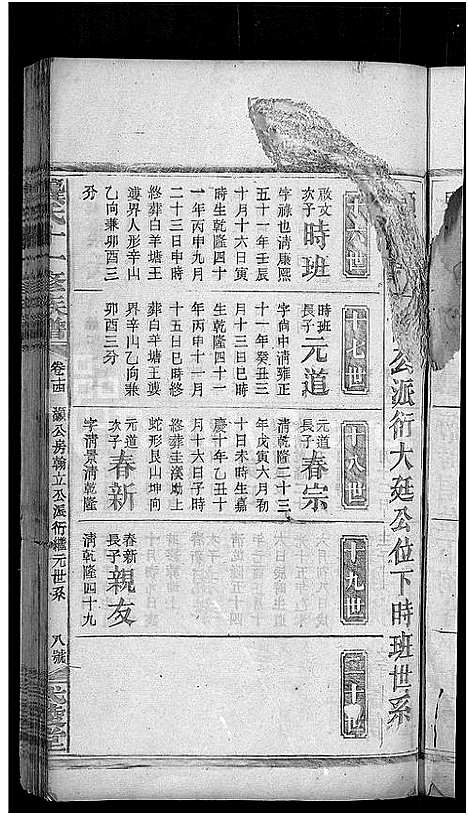 公派衍大廷公位下時班世系
十六世
啟文
次子
時班
字祿也清康熙
五十一年壬辰
十月十六日寅
時生乾隆四十
一年丙申九月
二十三日申時
終葬白羊塘王
邊界人形辛山
乙向兼卯酉三
分
十七世
時班
長子
元道
字尚中清雍正
十一年癸丑三
月十三日巳時
生乾隆四十一
年丙申十一月
十五日巳時終
葬白羊塘王邊
界辛山乙向兼
卯酉三分
十八世
元道
長子
春宗
清乾隆二十三
年戊寅六月初
十日未時生嘉
慶十年乙丑十
月十六日子時
終葬圭漢㘭上
蛇形艮山坤向
元道
次子
春新
字清景清乾隆
十九世
春新
長子
親友
清乾隆四十九
二十世
氏十一修族譜
卷十四
灝公房翰立公派衍繼元世系
八號